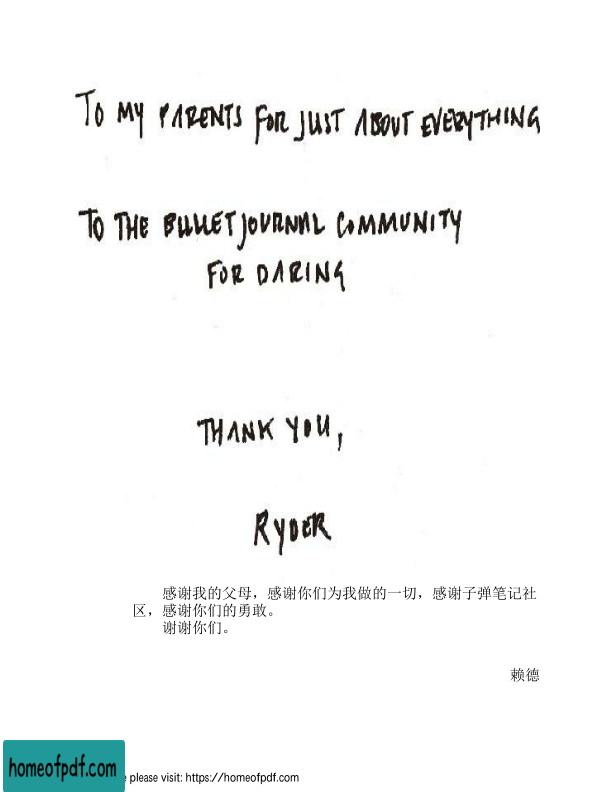 TO MY PARENTS FOR JUST ABOUT EVERYTHING
TO THE BULLET JOURNAL COMMUNITY
FOR DARING
THANK YOU,
RYDER
感谢我的父母，感谢你们为我做的一切，感谢子弹笔记社
区，感谢你们的勇敢。
谢谢你们。
赖德
homeofpdf.com
e please visit: https://homeofpdf.com